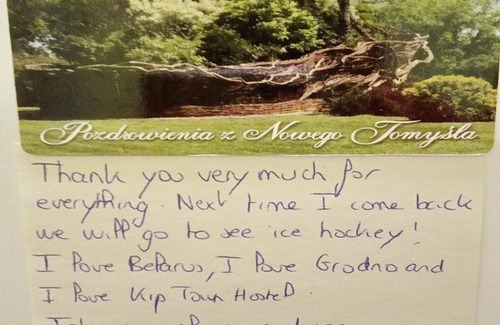 Pozdrowienia z Nowego Tomyśla
Thank you very much for
everything. Next time I come back
we will go to see ice hockey!
I love Belarus, I love Grodno and
I love Kip Town Hostel.